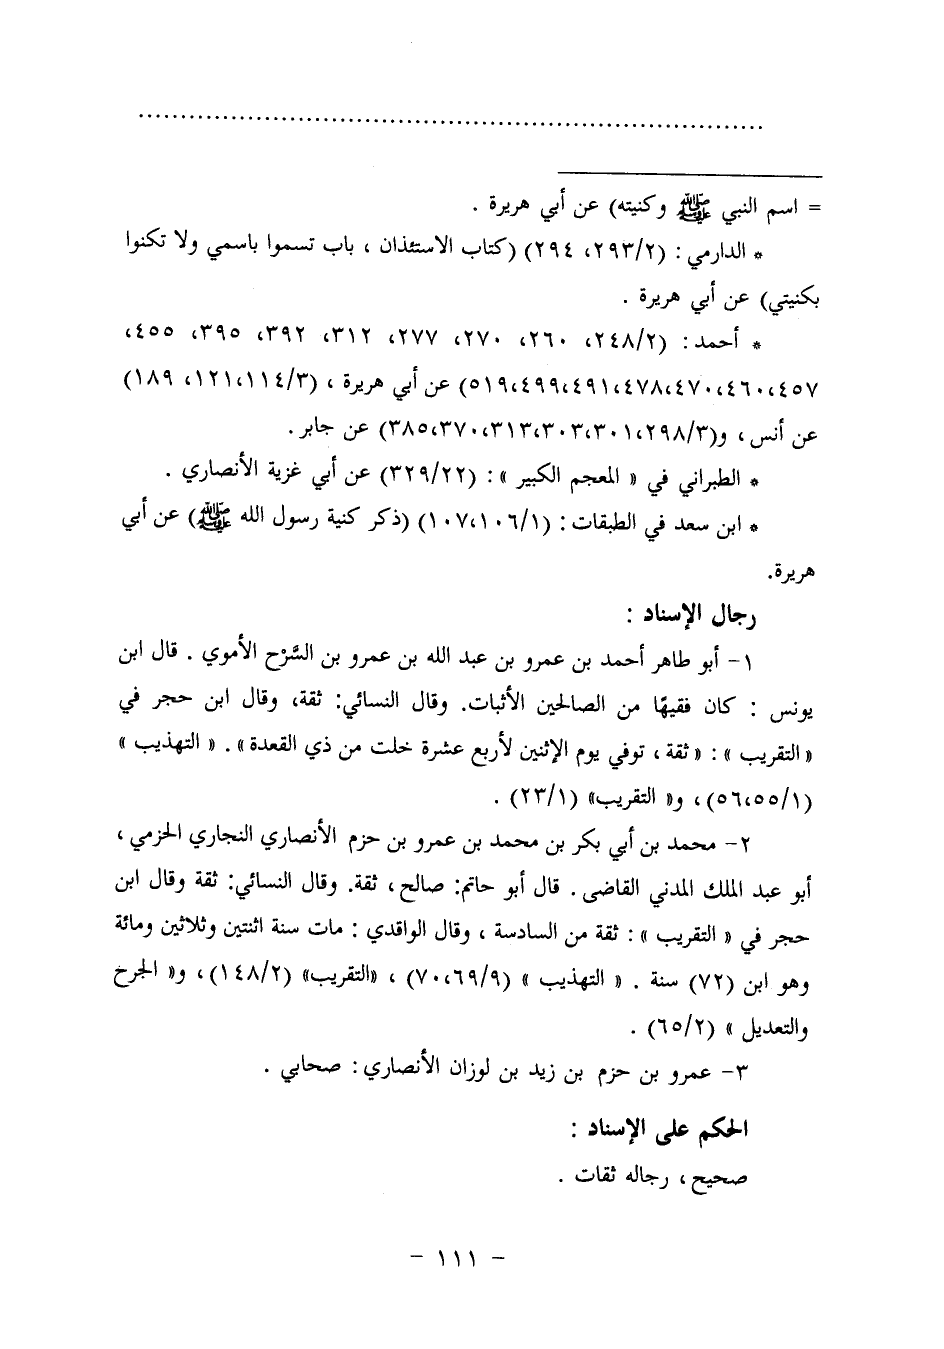 = اسم النبي ﷺ وكنيته) عن أبي هريرة .
* الدارمي : (٢٩٣/٢، ٢٩٤) (كتاب الاستئذان ، باب تسموا باسمي ولا تكنوا
بكنيتي) عن أبي هريرة .
* أحمد : (٢٤٨/٢، ٢٦٠، ٢٧٠، ٢٧٧، ٣١٢، ٣٩٢، ٣٩٥، ٤٥٥،
٤٥٧،٤٦٠،٤٧٠،٤٧٨،٤٩١،٤٩٩،٥١٩) عن أبي هريرة ، (١١٤/٣،١٢١، ١٨٩)
عن أنس ، و(٢٩٨/٣،٣٠١،٣٠٣،٣١٣،٣٧٠،٣٨٥) عن جابر .
* الطبراني في « المعجم الكبير » : (٣٢٩/٢٢) عن أبي غزية الأنصاري .
* ابن سعد في الطبقات : (١٠٦/١،١٠٧) (ذكر كنية رسول الله ﷺ) عن أبي
هريرة.
رجال الإسناد :
١- أبو طاهر أحمد بن عمرو بن عبد الله بن عمرو بن السَّرْح الأموي . قال ابن
يونس : كان فقيهًا من الصالحين الأثبات. وقال النسائي: ثقة، وقال ابن حجر في
« التقريب » : « ثقة ، توفي يوم الإثنين لأربع عشرة خلت من ذي القعدة» . « التهذيب »
(٥٥/١،٥٦)، و« التقريب» (٢٣/١) .
٢- محمد بن أبي بكر بن محمد بن عمرو بن حزم الأنصاري النجاري الحزمي ،
أبو عبد الملك المدني القاضي . قال أبو حاتم: صالح، ثقة. وقال النسائي: ثقة وقال ابن
حجر في « التقريب » : ثقة من السادسة ، وقال الواقدي : مات سنة اثنتين وثلاثين ومائة
وهو ابن (٧٢) سنة . « التهذيب » (٦٩/٩،٧٠) ، «التقريب» (١٤٨/٢)، و« الجرح
والتعديل » (٦٥/٢) .
٣- عمرو بن حزم بن زيد بن لوزان الأنصاري : صحابي .
الحكم على الإسناد :
صحيح ، رجاله ثقات .
- ١١١ -